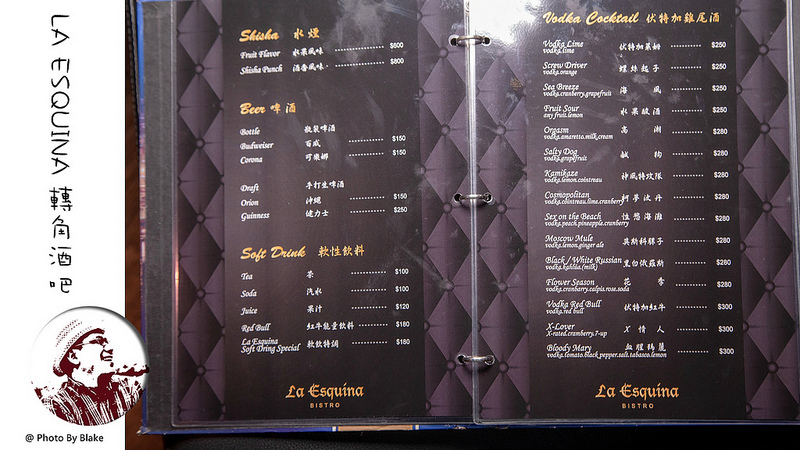 LA ESQUINA 轉角酒吧
@ Photo By Blake
Shisha 水煙
Fruit Flavor 水果風味 $600
Shisha Punch 酒香風味 $800
Beer 啤酒
Bottle 瓶裝啤酒
Budweiser 百威 $150
Corona 可樂娜 $150
Draft 手打生啤酒
Orion 沖繩 $150
Guinness 健力士 $250
Soft Drink 軟性飲料
Tea 茶 $100
Soda 汽水 $100
Juice 果汁 $120
Red Bull 紅牛能量飲料 $180
La Esquina
Soft Dring Special 軟飲特調 $180
La Esquina
BISTRO
Vodka Cocktail 伏特加雞尾酒
Vodka Lime 伏特加萊姆 $250
vodka.lime
Screw Driver 螺絲起子 $250
vodka.orange
Sea Breeze 海風 $250
vodka.cranberry.grapefruit
Fruit Sour 水果酸酒 $250
any fruit.lemon
Orgasm 高潮 $280
vodka.amaretto.milk.cream
Salty Dog 鹹狗 $280
vodka.grapefruit
Kamikaze 神風特攻隊 $280
vodka.lemon.cointreau
Cosmopolitan 柯夢波丹 $280
vodka.cointreau.lime.cranberry
Sex on the Beach 性慾海灘 $280
vodka.peach.pineapple.cranberry
Moscow Mule 莫斯科騾子 $280
vodka.lemon.ginger ale
Black / White Russian 黑白俄羅斯 $280
vodka.kahlua.(milk)
Flower Season 花季 $280
vodka.cranbarry.calpis.rose.soda
Vodka Red Bull 伏特加紅牛 $300
vodka.red bull
X-Lover X 情人 $300
X-rated.cramberry.7-up
Bloody Mary 血腥瑪麗 $300
vodka.tomato.black.pepper.salt.tabasco.lemon
La Esquina
BISTRO